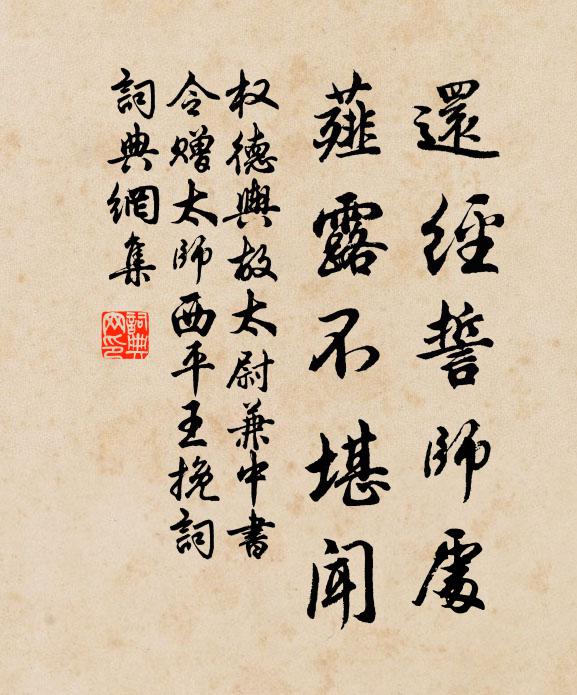 還經誓師處
薤露不堪聞
权德輿故太尉兼中書
令赠太师西平王挽詞
詞典網集
詞典網印